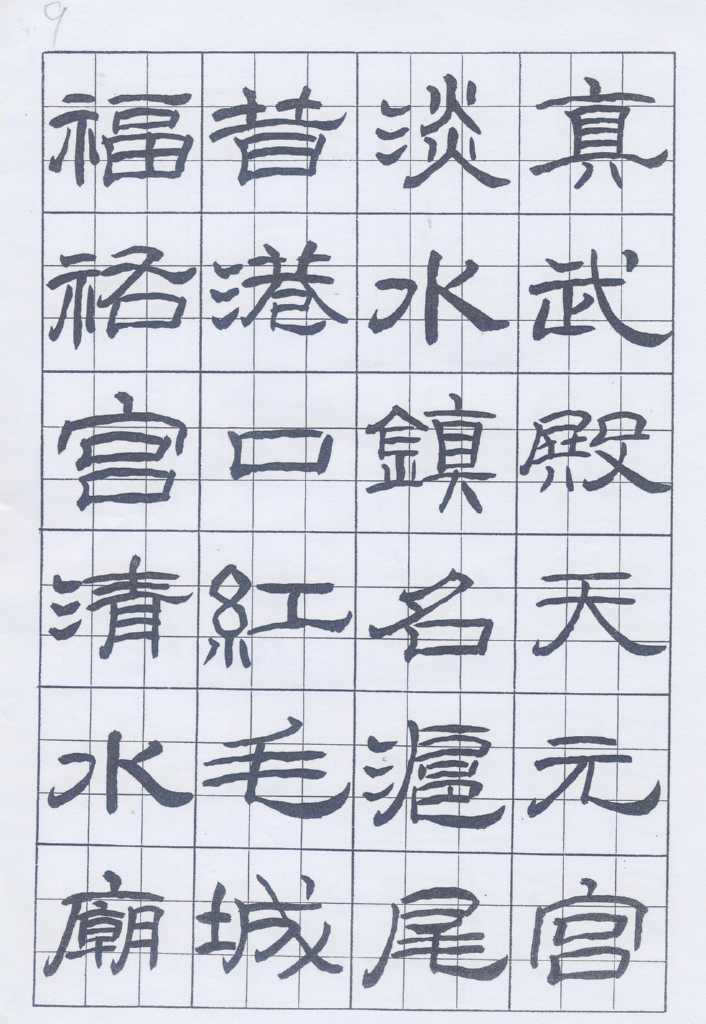 9
真武殿天元宮
淡水鎮名滬尾
昔港口紅毛城
福祐宮清水廟